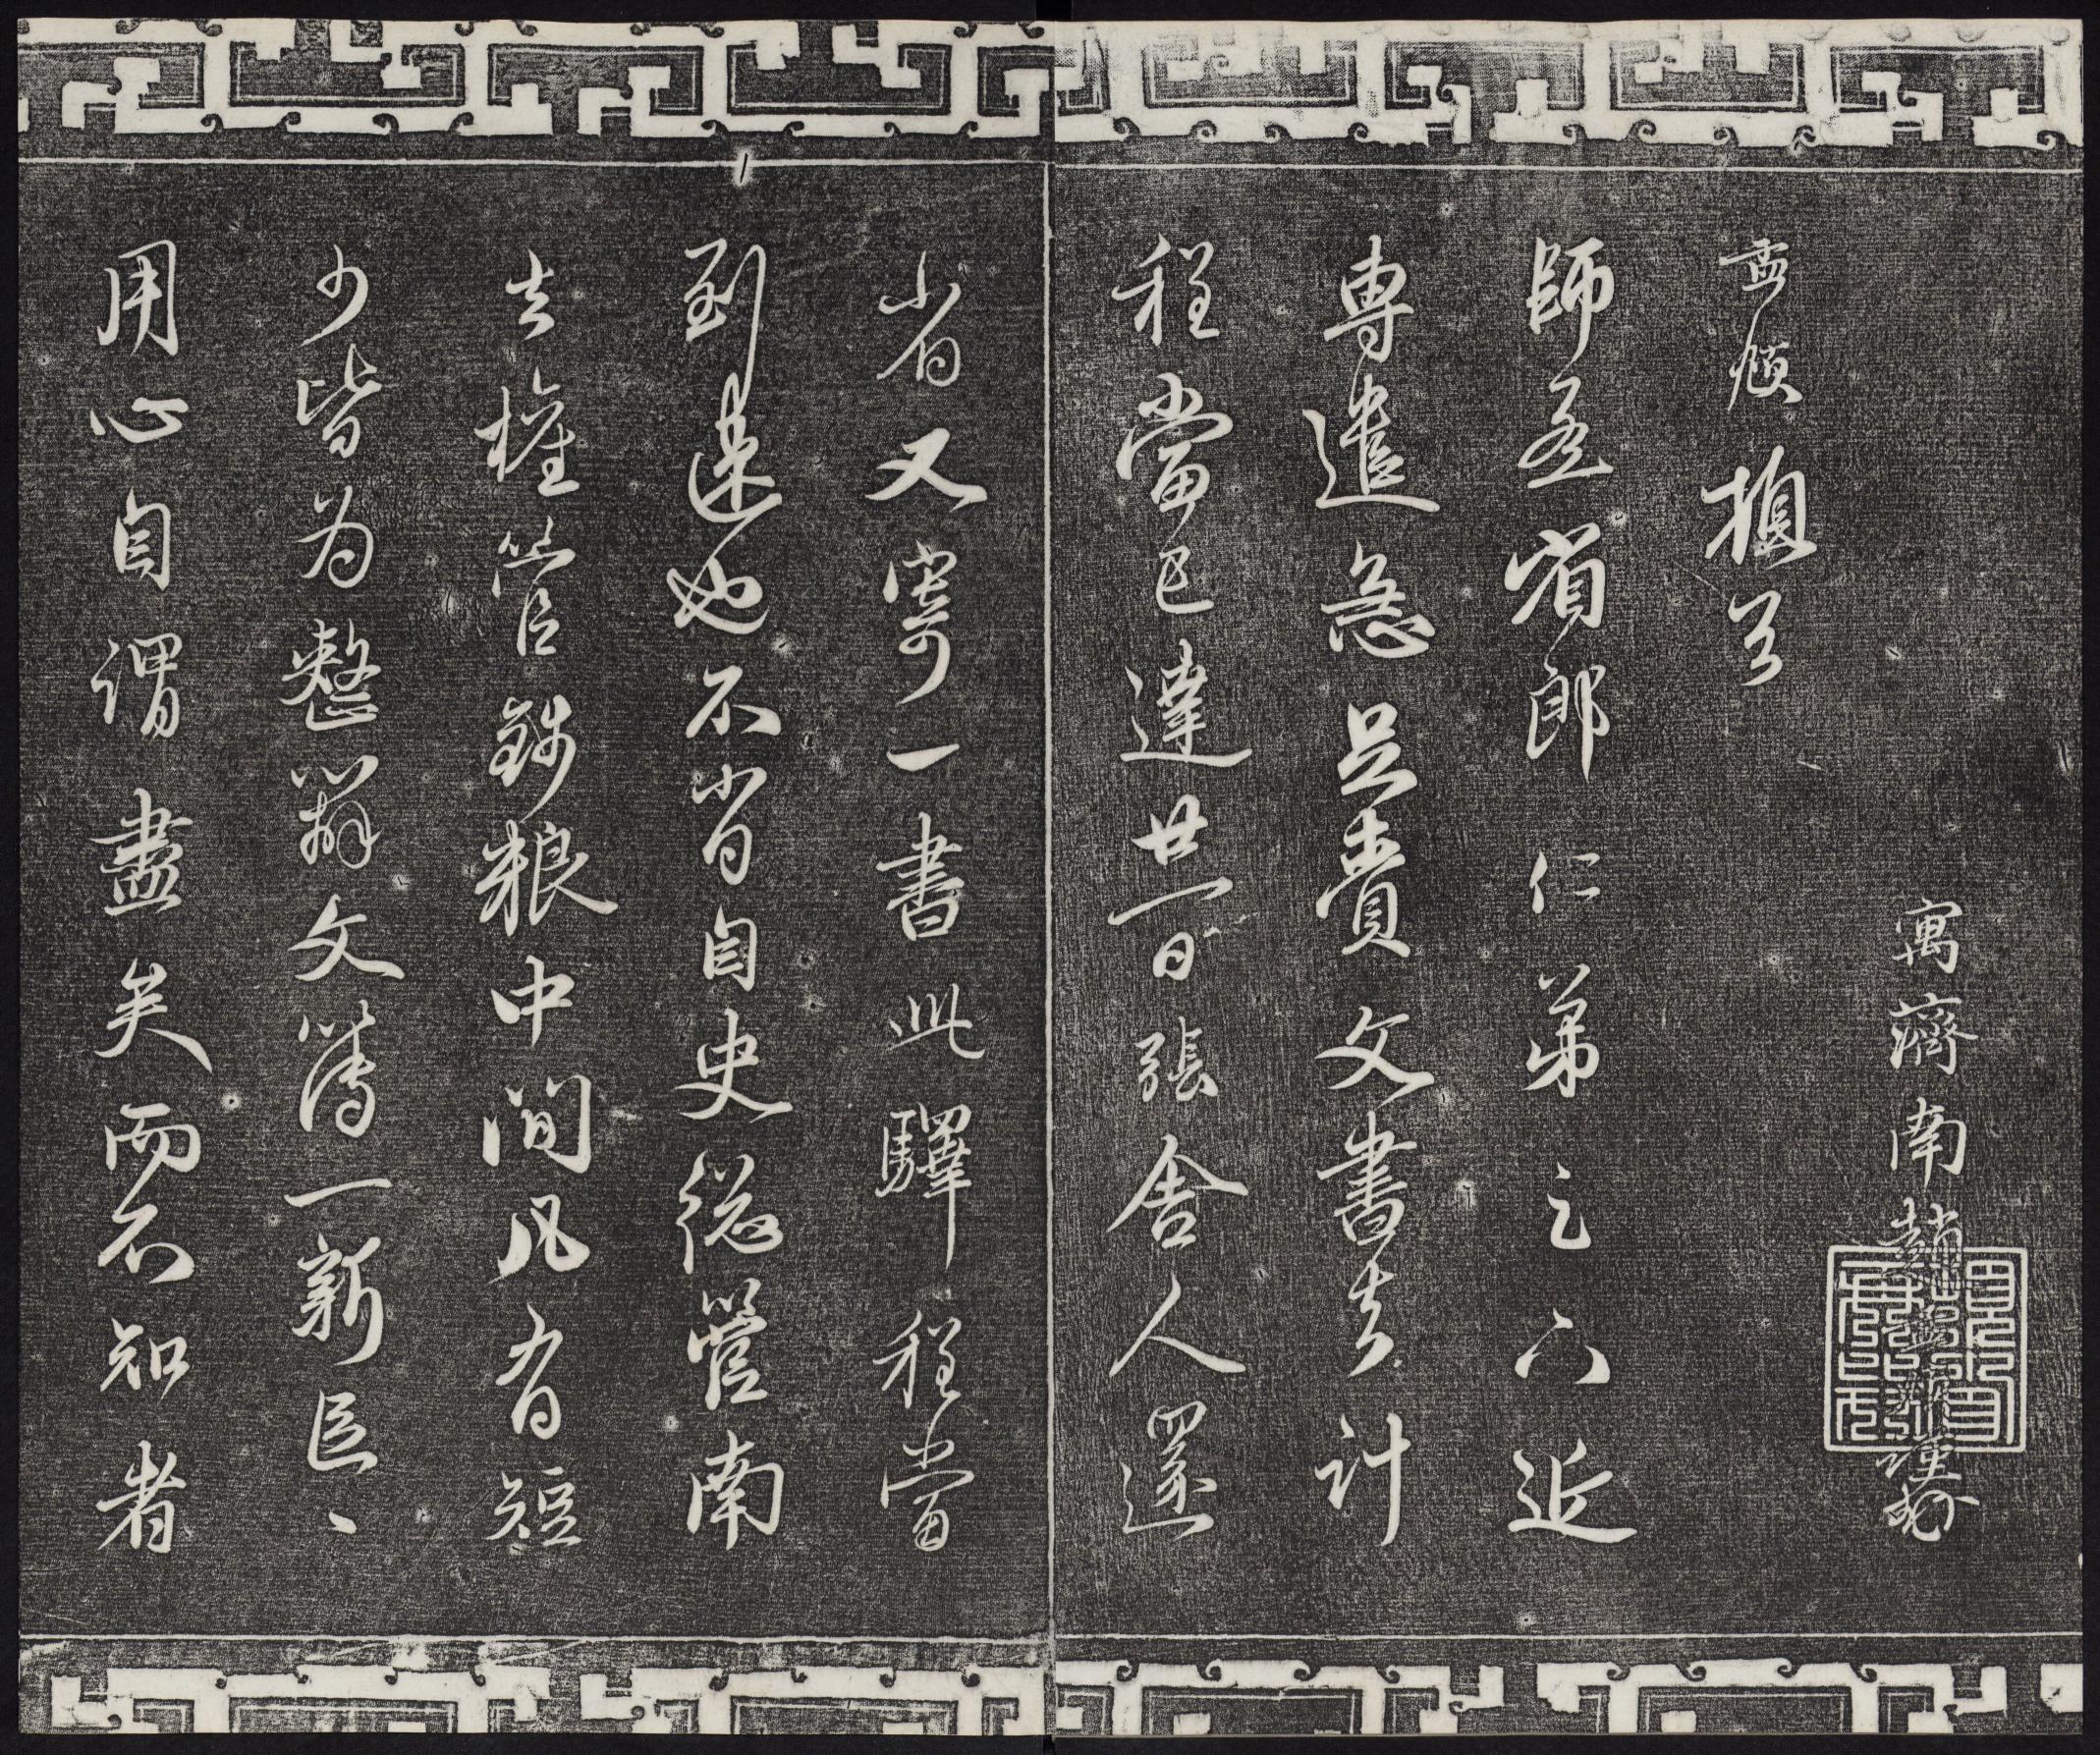 寓濟南趙孟頫謹封
孟頫頓首
師孟省郎仁弟足下近
專遣急足賫文書去計
程當已達廿一日張舍人還
省又寄一書此驛程當
到速也不肖自史總管南
去權管錢粮中間凡有短
少皆為整辦文簿一新區、
用心自謂盡矣而不知者